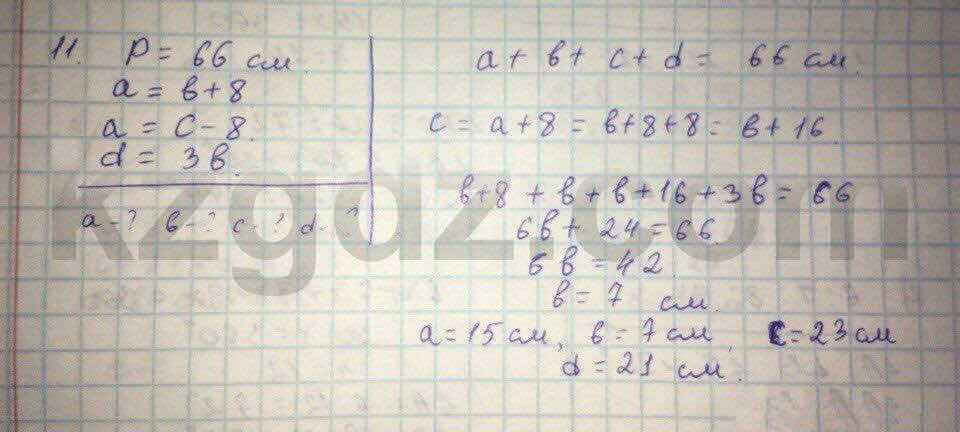 11. P = 66 см.
a = в + 8
a = c - 8.
d = 3в.
a - ? в - ? c - ? d - ?
a + в + c + d = 66 см.
c = a + 8 = в + 8 + 8 = в + 16
в + 8 + в + в + 16 + 3в = 66
6в + 24 = 66.
6в = 42
в = 7 см.
a = 15 см, в = 7 см, c = 23 см
d = 21 см.
kzgdz.com